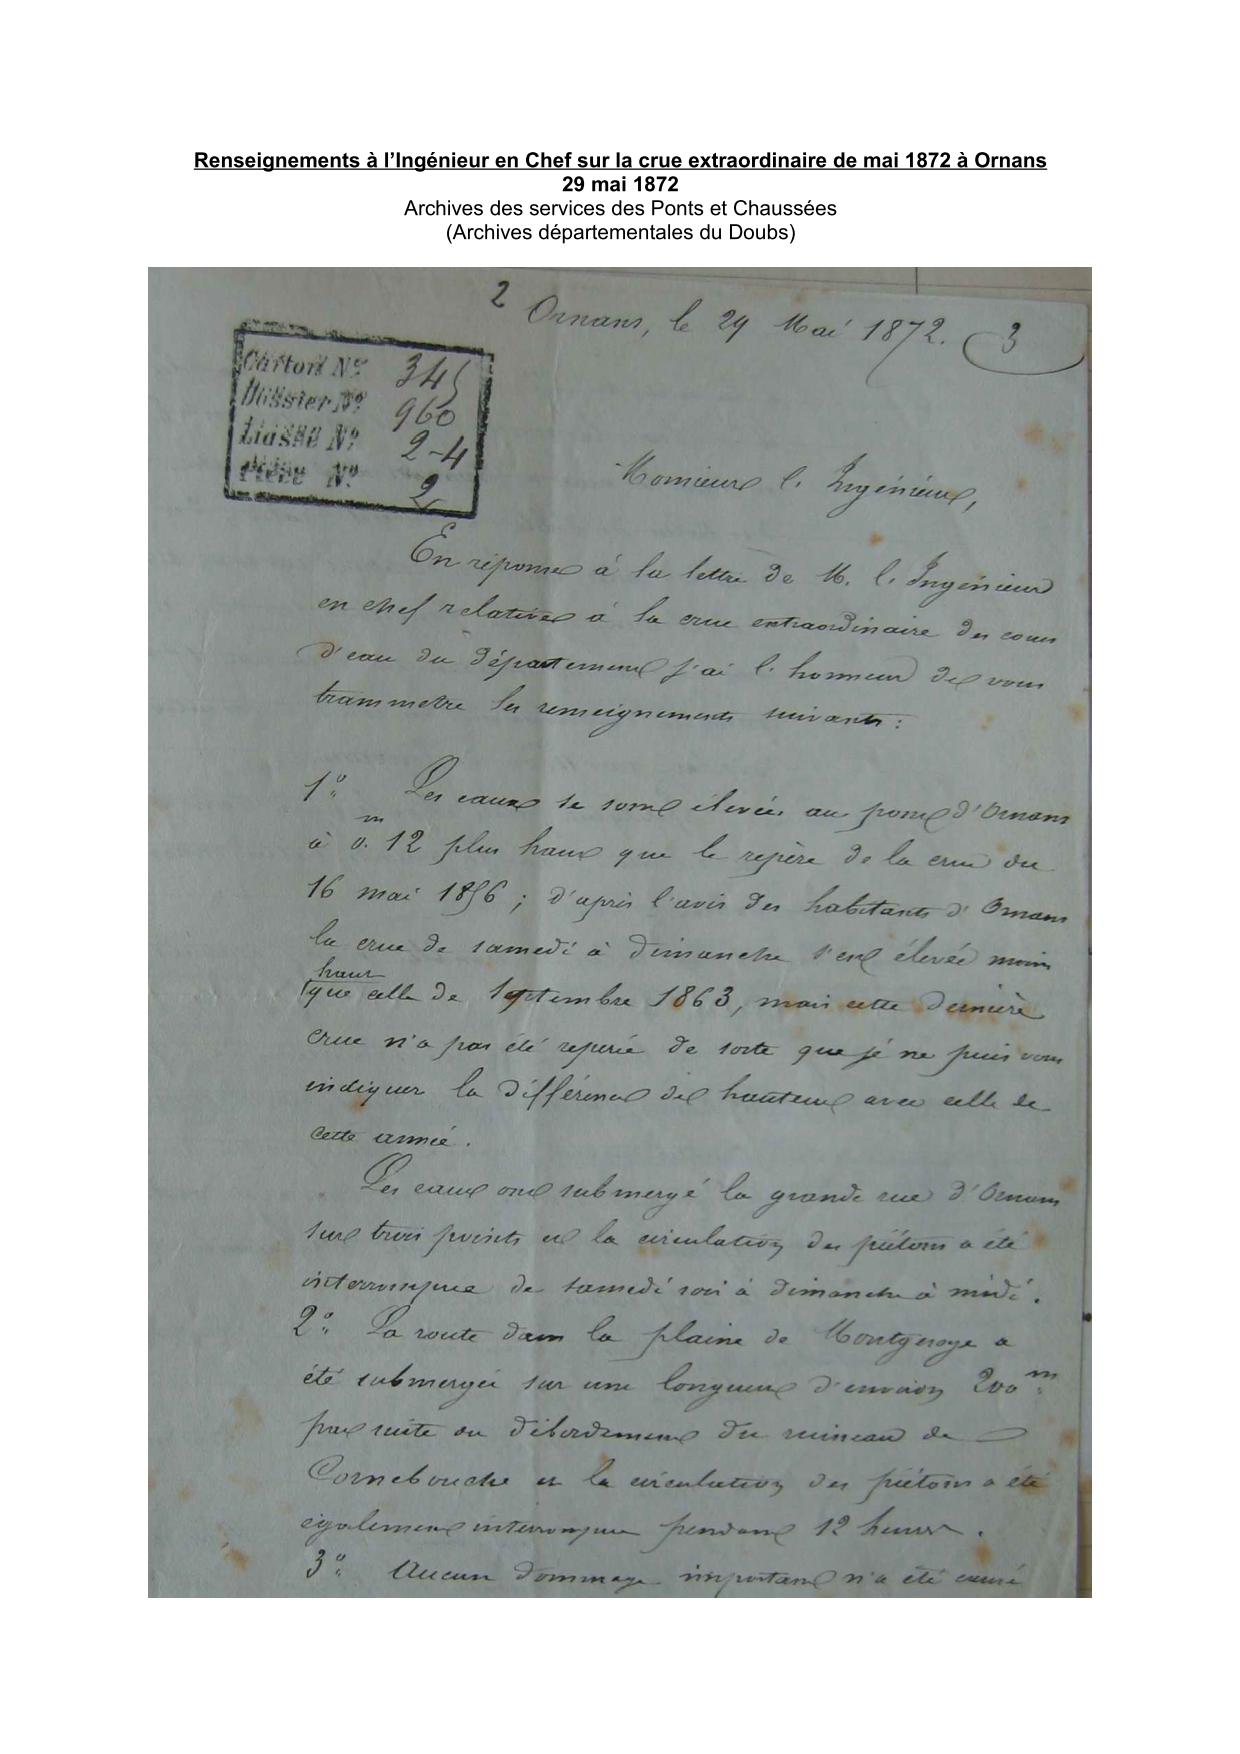 Renseignements à l'Ingénieur en Chef sur la crue extraordinaire de mai 1872 à Ornans
29 mai 1872
Archives des services des Ponts et Chaussées
(Archives départementales du Doubs)
2 Ornans, le 29 Mai 1872. 3
Carton Nº 345
Dossier Nº 960
Liasse Nº 2-4
Pièce Nº 2
Monsieur l'Ingénieur,
En réponse à la lettre de M. l'Ingénieur
en chef relative à la crue extraordinaire des cours
d'eau du département j'ai l'honneur de vous
transmettre les renseignements suivants :
1º Les eaux se sont élevées au pont d'Ornans
à 0.m 12 plus haut que le repère de la crue du
16 mai 1856 ; d'après l'avis des habitants d'Ornans
la crue de samedi à dimanche s'est élevée moins
haut
que celle de septembre 1863, mais cette dernière
crue n'a pas été reperée de sorte que je ne puis vous
indiquer la différence de hauteur avec celle de
cette année.
Les eaux ont submergé la grande rue d'Ornans
sur trois points et la circulation des piétons a été
interrompue de samedi soir à dimanche à midi.
2º La route dans la plaine de Montgesoye a
été submergée sur une longueur d'environ 200m
par suite du débordement du ruisseau de
Cornebouche et la circulation des piétons a été
également interrompue pendant 12 heures.
3º Aucun dommage important n'a été causé